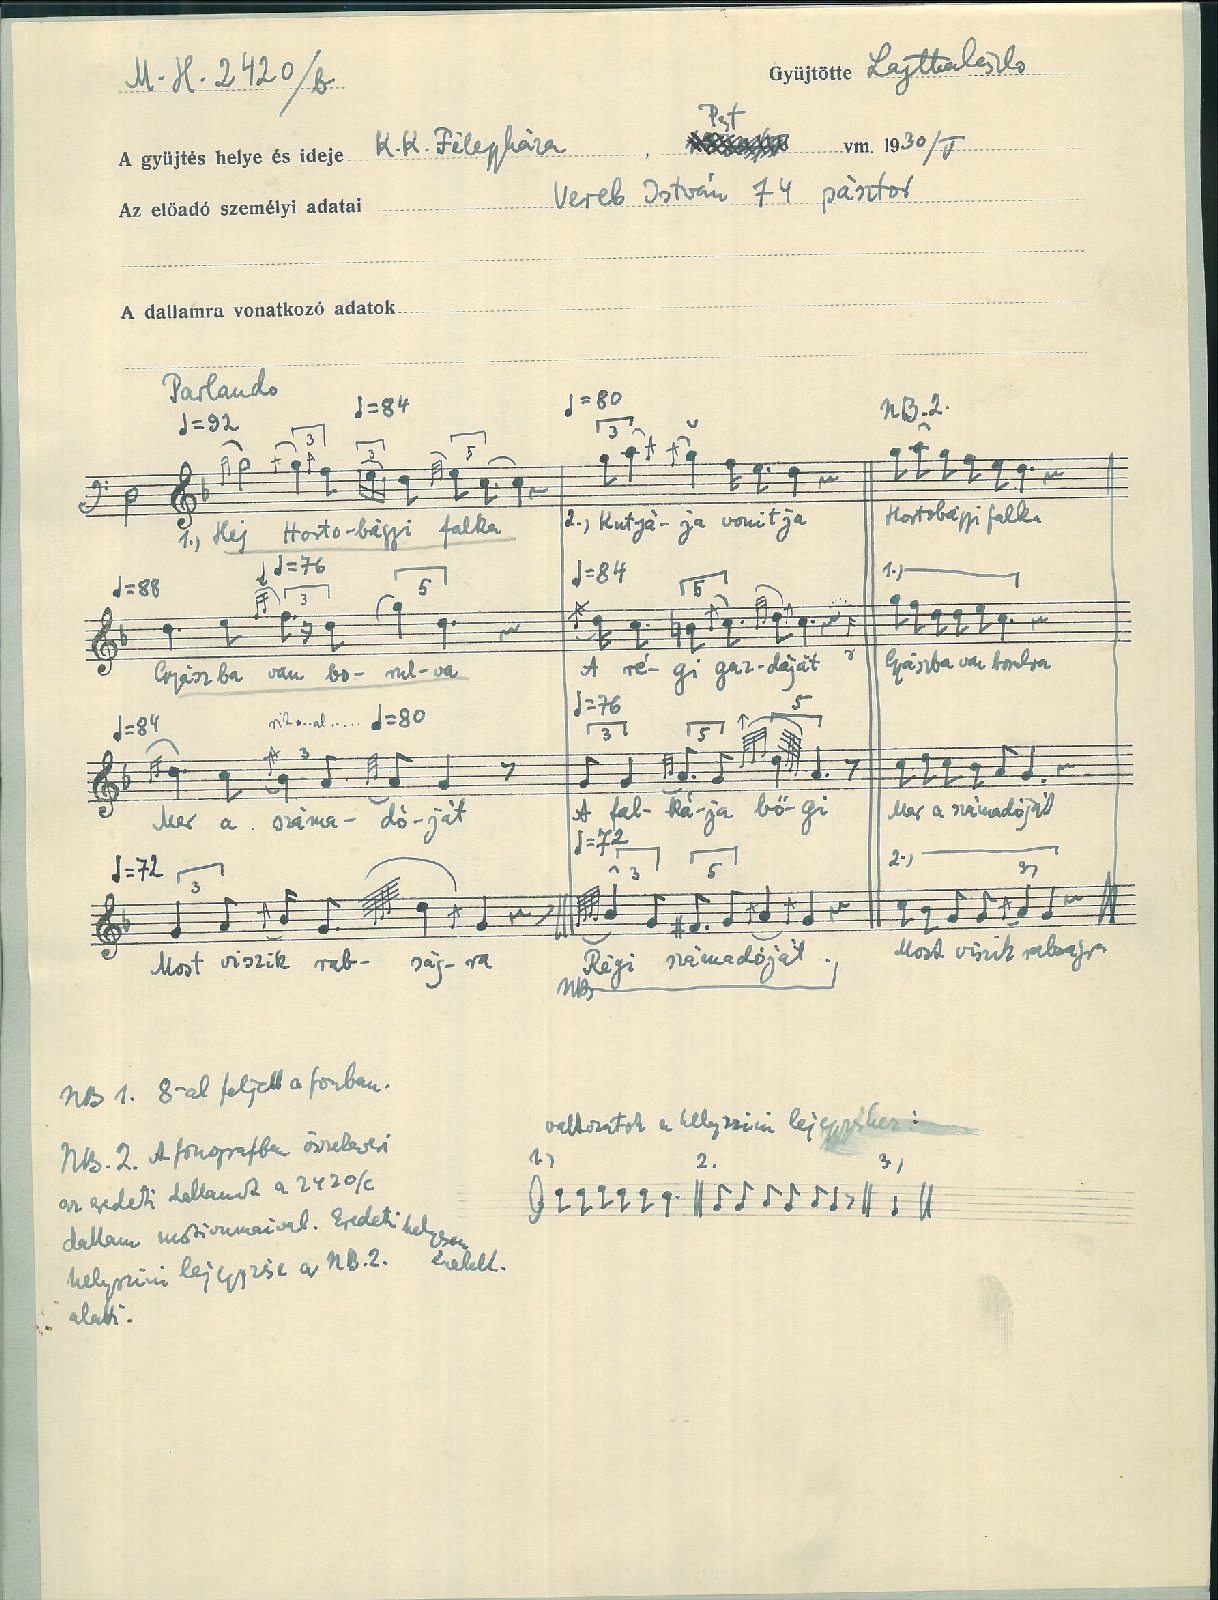 M.H. 2420/b
Gyüjtötte Lajtha László
Pest
A gyüjtés helye és ideje K.K. Félegyháza, vm. 1930/V
Az előadó személyi adatai Vereb István 74 pásztor
A dallamra vonatkozó adatok
Parlando
♩=92 ♩=84 ♩=80 NB.2.
3 3 5 3
1., Hej Horto-bágyi falka 2., Kutyá-ja vonitja Hortobágyi falka
♩=88 ♩=76 ♩=84 1.,
3 5 5
Gyászba van bo-rul-va A ré-gi gaz-dáját Gyászba van borulva
♩=84 ♩=80 ♩=76
3 3 5 5
Mer a száma-dó-ját A fal-ká-ja bő-gi Mer a számadóját
♩=72 ♩=72 2.,
3 3 5 3,
Most viszik rab-ság-ra Régi számadóját Most viszik rabságra
NB
NB 1. 8-al feljebb a fonban.
NB.2. A fonografban összekeveri
az eredeti dallamot a 2420/c
dallam motivumaival. Eredeti helyesen
helyszini lejegyzése az NB.2. énekelt.
alatti.
változatok a helyszini lejegyzéshez:
1.) 2. 3.,